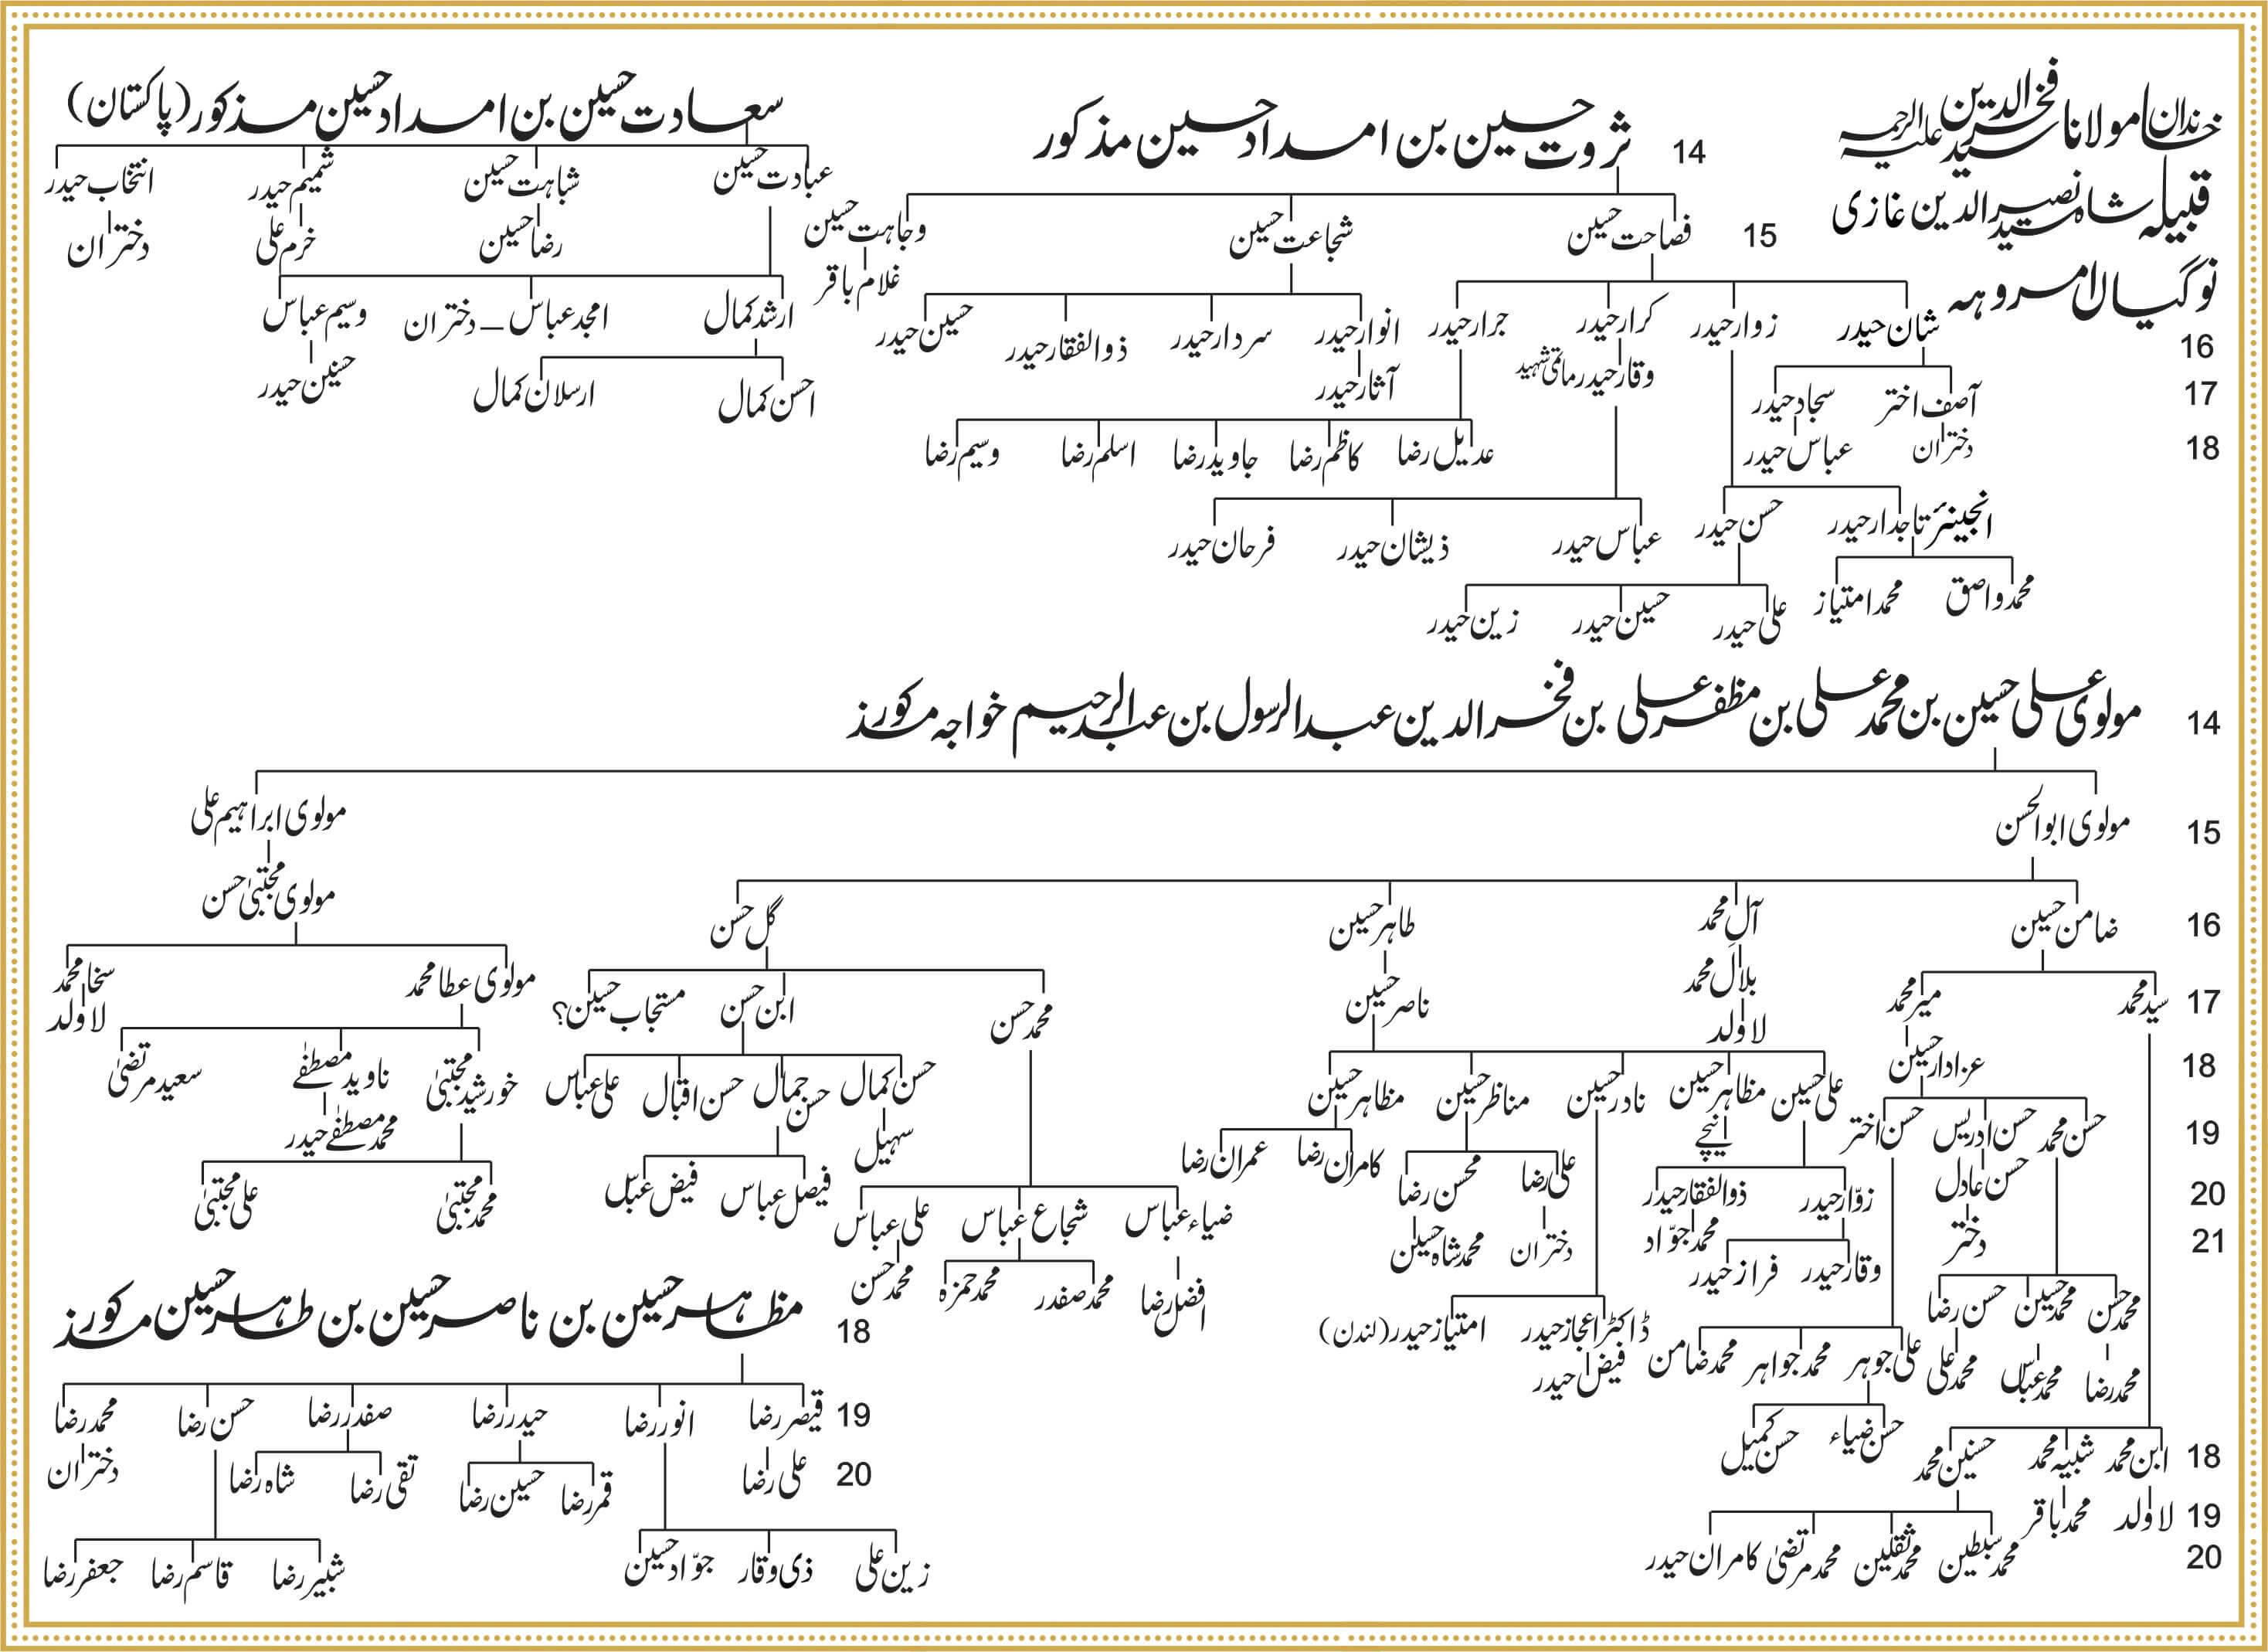 خاندان مولانا سید فخرالدین علیہ الرحمہ
قبیلہ شاہ سید نصیرالدین غازی
نوگیاں امروہہ
14 ثروت حسین بن امداد حسین مذکور
سعادت حسین بن امداد حسین مذکور (پاکستان)
15 فصاحت حسین شجاعت حسین وجاہت حسین
غلام باقر
عبادت حسین شباہت حسین شمیم حیدر انتخاب حیدر
رضا حسین خرم علی دختران
ارشد کمال امجد عباس – دختران وسیم عباس
احسن کمال ارسلان کمال حسنین حیدر
16 شان حیدر زوار حیدر کرار حیدر جرار حیدر انوار حیدر سردار حیدر ذوالفقار حیدر حسین حیدر
17 آصف اختر سجاد حیدر وقار حیدر ماتمی شہید آثار حیدر
18 دختران عباس حیدر عدیل رضا کاظم رضا جاوید رضا اسلم رضا وسیم رضا
انجینئر تاجدار حیدر حسن حیدر عباس حیدر ذیشان حیدر فرحان حیدر
محمد واصق محمد امتیاز علی حیدر حسین حیدر زین حیدر
14 مولوی علی حسین بن محمد علی بن مظفر علی بن فخرالدین عبدالرسول بن عبدالرحیم خواجہ مذکور
15 مولوی ابوالحسن مولوی ابراہیم علی
16 ضامن حسین آل محمد طاہر حسین گل حسن مولوی مجتبیٰ حسن
17 سید محمد میر محمد بلال محمد ناصر حسین محمد حسن ابن حسن مستجاب حسین؟ مولوی عطا محمد سخا محمد
لاولد لاولد
18 عزادار حسین علی حسین مظاہر حسین نادر حسین مناظر حسین مظاہر حسین حسن کمال حسن جمال حسن اقبال علی عباس خورشید مجتبیٰ ناوید مصطفےٰ سعید مرتضیٰ
19 حسن محمد حسن ادریس حسن اختر نیچے کامران رضا عمران رضا سہیل محمد مصطفےٰ حیدر
20 حسن عادل زوّار حیدر ذوالفقار حیدر علی رضا محسن رضا ضیاء عباس شجاع عباس علی عباس فیصل عباس فیض عباس محمد مجتبیٰ علی مجتبیٰ
21 دختر وقار حیدر فراز حیدر محمد جوّاد دختران محمد شاہ حسین افضل رضا محمد صفدر محمد حمزہ محمد حسن
محمد حسن محمد حسین حسن رضا ڈاکٹر اعجاز حیدر امتیاز حیدر (لندن)
محمد رضا محمد عباس محمد علی علی جوہر محمد جواہر محمد ضامن فیض حیدر
حسن ضیاء حسن کمیل
18 ابن محمد شبیہ محمد حسنین محمد
19 لاولد محمد باقر
20 محمد سبطین محمد ثقلین محمد مرتضیٰ کامران حیدر
18 مظاہر حسین بن ناصر حسین بن طاہر حسین مذکور
19 قیصر رضا انور رضا حیدر رضا صفدر رضا حسن رضا محمد رضا
20 علی رضا قمر رضا حسین رضا تقی رضا شاہ رضا دختران
زین علی ذی وقار جوّاد حسین شبیر رضا قاسم رضا جعفر رضا